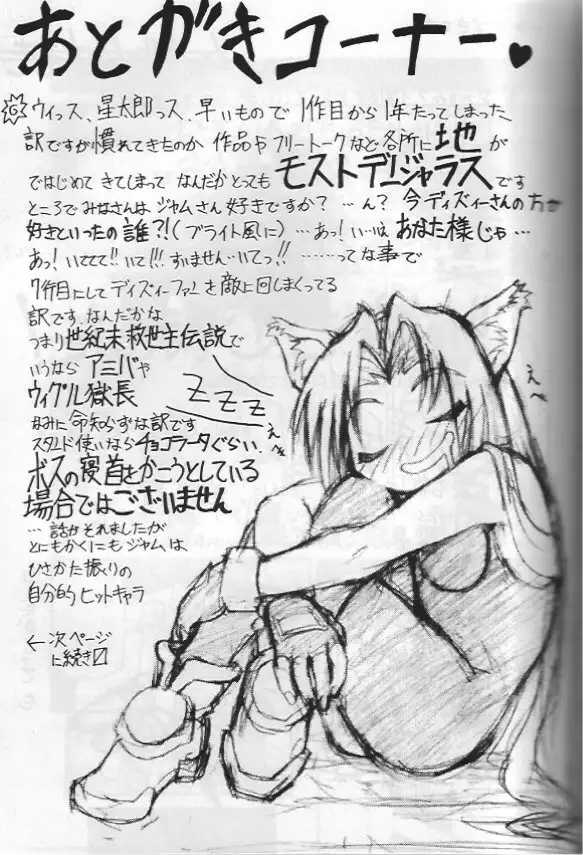 あとがきコーナー♥
ウィっス、星太郎っス、早いもので1作目から1年たってしまった
訳ですが慣れてきたのか 作品やフリートークなど各所に地が
ではじめてきてしまって なんだかとってもモストデンジャラスです
ところでみなさんはジャムさん好きですか? …ん? 今ディズィーさんの方が
好きといったの誰?!(ブライト風に)…あっ!いいえあなた様じゃ…
あっ!いててて!!いて!!!すいません…いてっ!!……ってな事で
7行目にしてディズィーファンを敵に回しまくってる
訳です。なんだかな
つまり世紀末救世主伝説で
いうなら アミバや
ウィグル獄長
なみに命知らずな訳です
スタンド使いならチョコラータぐらい.
ボスの寝首をかこうとしている
場合ではございません
…話がそれましたが
とにもかくにもジャムは
ひさかた振りの
自分的ヒットキャラ
←次ページ
に続き
ZZZ
えへ
えへ